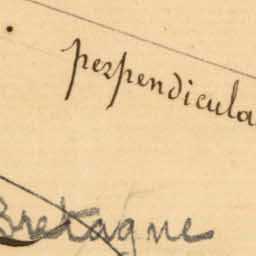 perpendicula
Bretagne